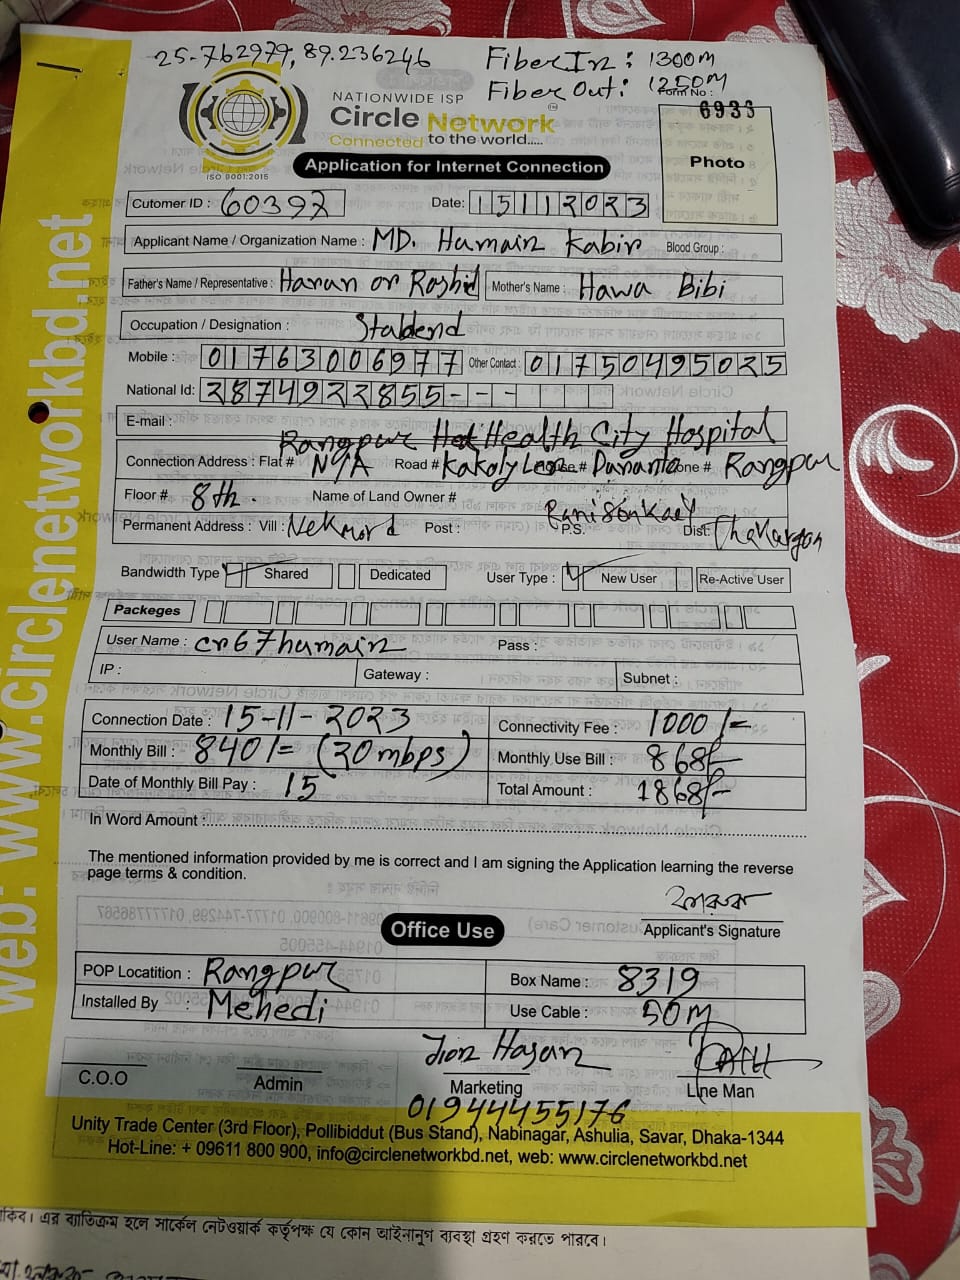 25.762979, 89.236246
Fiber In : 1300m
Fiber Out : 1250m
Form No :
6933
NATIONWIDE ISP
Circle Network
Connected to the world.....
ISO 9001:2015
Photo
Application for Internet Connection
Cutomer ID : 60392 Date: 15112023
Applicant Name / Organization Name : MD. Humain Kabir Blood Group :
Father's Name / Representative : Harun or Roshid Mother's Name : Hawa Bibi
Occupation / Designation : Stabend
Mobile : 01763006977 Other Contact : 01750495025
National Id: 2874922855---
E-mail :
Rangpur Health City Hospital
Connection Address : Flat # N/A Road # Kakoly Lane # Zone # Rangpur
Floor # 8th. Name of Land Owner #
Permanent Address : Vill : Nekmord Post : P.S. Ranisonkael Dist:
Bandwidth Type Shared Dedicated User Type : New User Re-Active User
Packeges
User Name : cn67humain Pass :
IP : Gateway : Subnet :
Connection Date : 15-11-2023 Connectivity Fee : 1000/=
Monthly Bill : 840/= (20mbps) Monthly Use Bill : 868/-
Date of Monthly Bill Pay : 15 Total Amount : 1868/-
In Word Amount :
The mentioned information provided by me is correct and I am signing the Application learning the reverse
page terms & condition.
Applicant's Signature
Office Use
POP Locatition : Rangpur Box Name : 8319
Installed By : Mehedi Use Cable : 50m
Hasan
C.O.O Admin Marketing Line Man
01944455176
Unity Trade Center (3rd Floor), Pollibiddut (Bus Stand), Nabinagar, Ashulia, Savar, Dhaka-1344
Hot-Line: + 09611 800 900, info@circlenetworkbd.net, web: www.circlenetworkbd.net
web: www.circlenetworkbd.net
এর ব্যতিক্রম হলে সার্কেল নেটওয়ার্ক কর্তৃপক্ষ যে কোন আইনানুগ ব্যবস্থা গ্রহণ করতে পারবে।